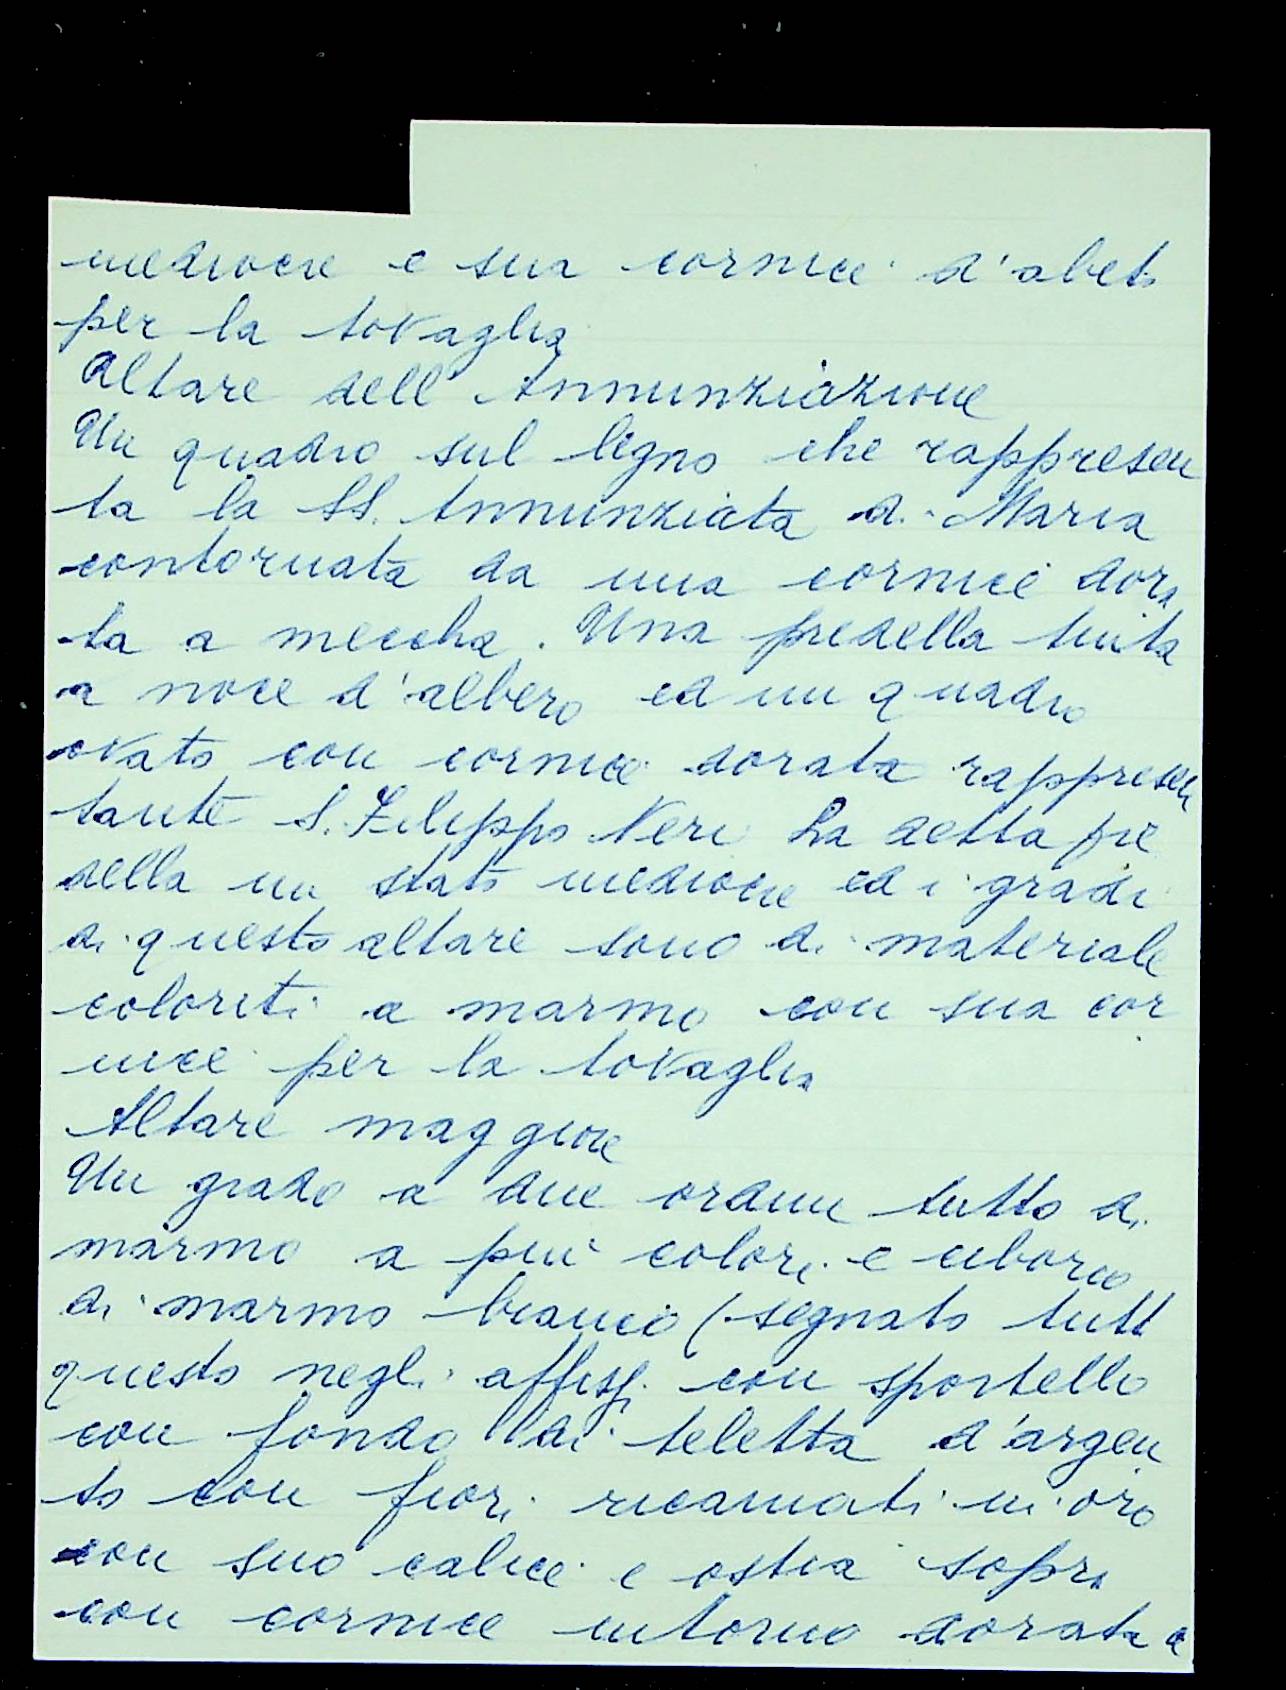 mediocre e sua cornice d'abeto
per la tovaglia
Altare dell'Annunziazione
Un quadro sul legno che rappresen
ta la SS. Annunziata di Maria
contornata da una cornice dora
ta a meccha. Una predella tinta
a noce d'albero ed un quadro
ovato con cornice dorata rappresen
tante S. Filippo Neri La detta pre
della in stato mediocre ed i gradi
di questo altare sono di materiale
coloriti a marmo con sua cor
nice per la tovaglia
Altare maggiore
Un grado a due ordini tutto di
marmo a più colori e ciborio
di marmo bianco (segnato tutt
questo negli affissi con sportello
con fondo di teletta d'argen
to con fiori ricamati in oro
con suo calice e ostia sopra
con cornice intorno dorata a